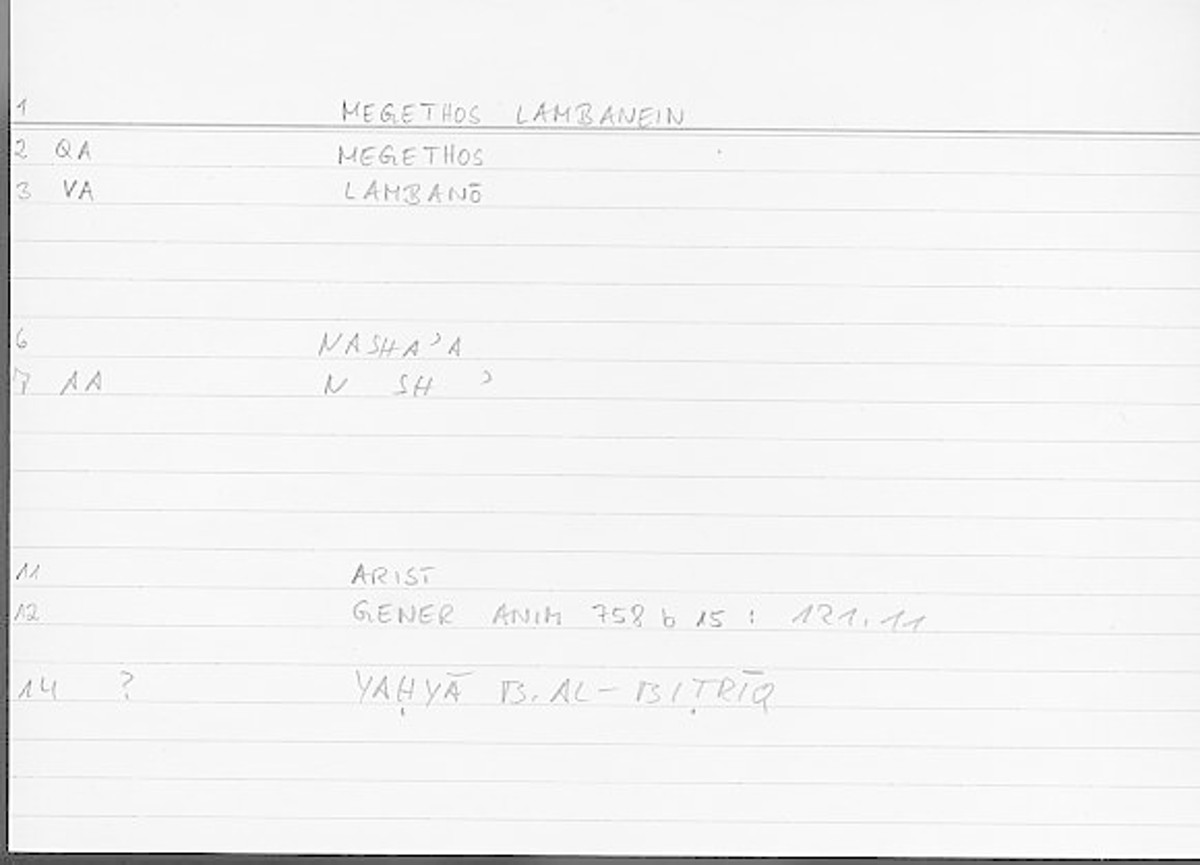 1 MEGETHOS LAMBANEIN
2 QA MEGETHOS
3 VA LAMBANŌ
6 NASHA’A
7 AA N SH ’
11 ARIST
12 GENER ANIM 758 b 15 : 121.11
14 ? YAḤYĀ B. AL-BIṬRĪQ